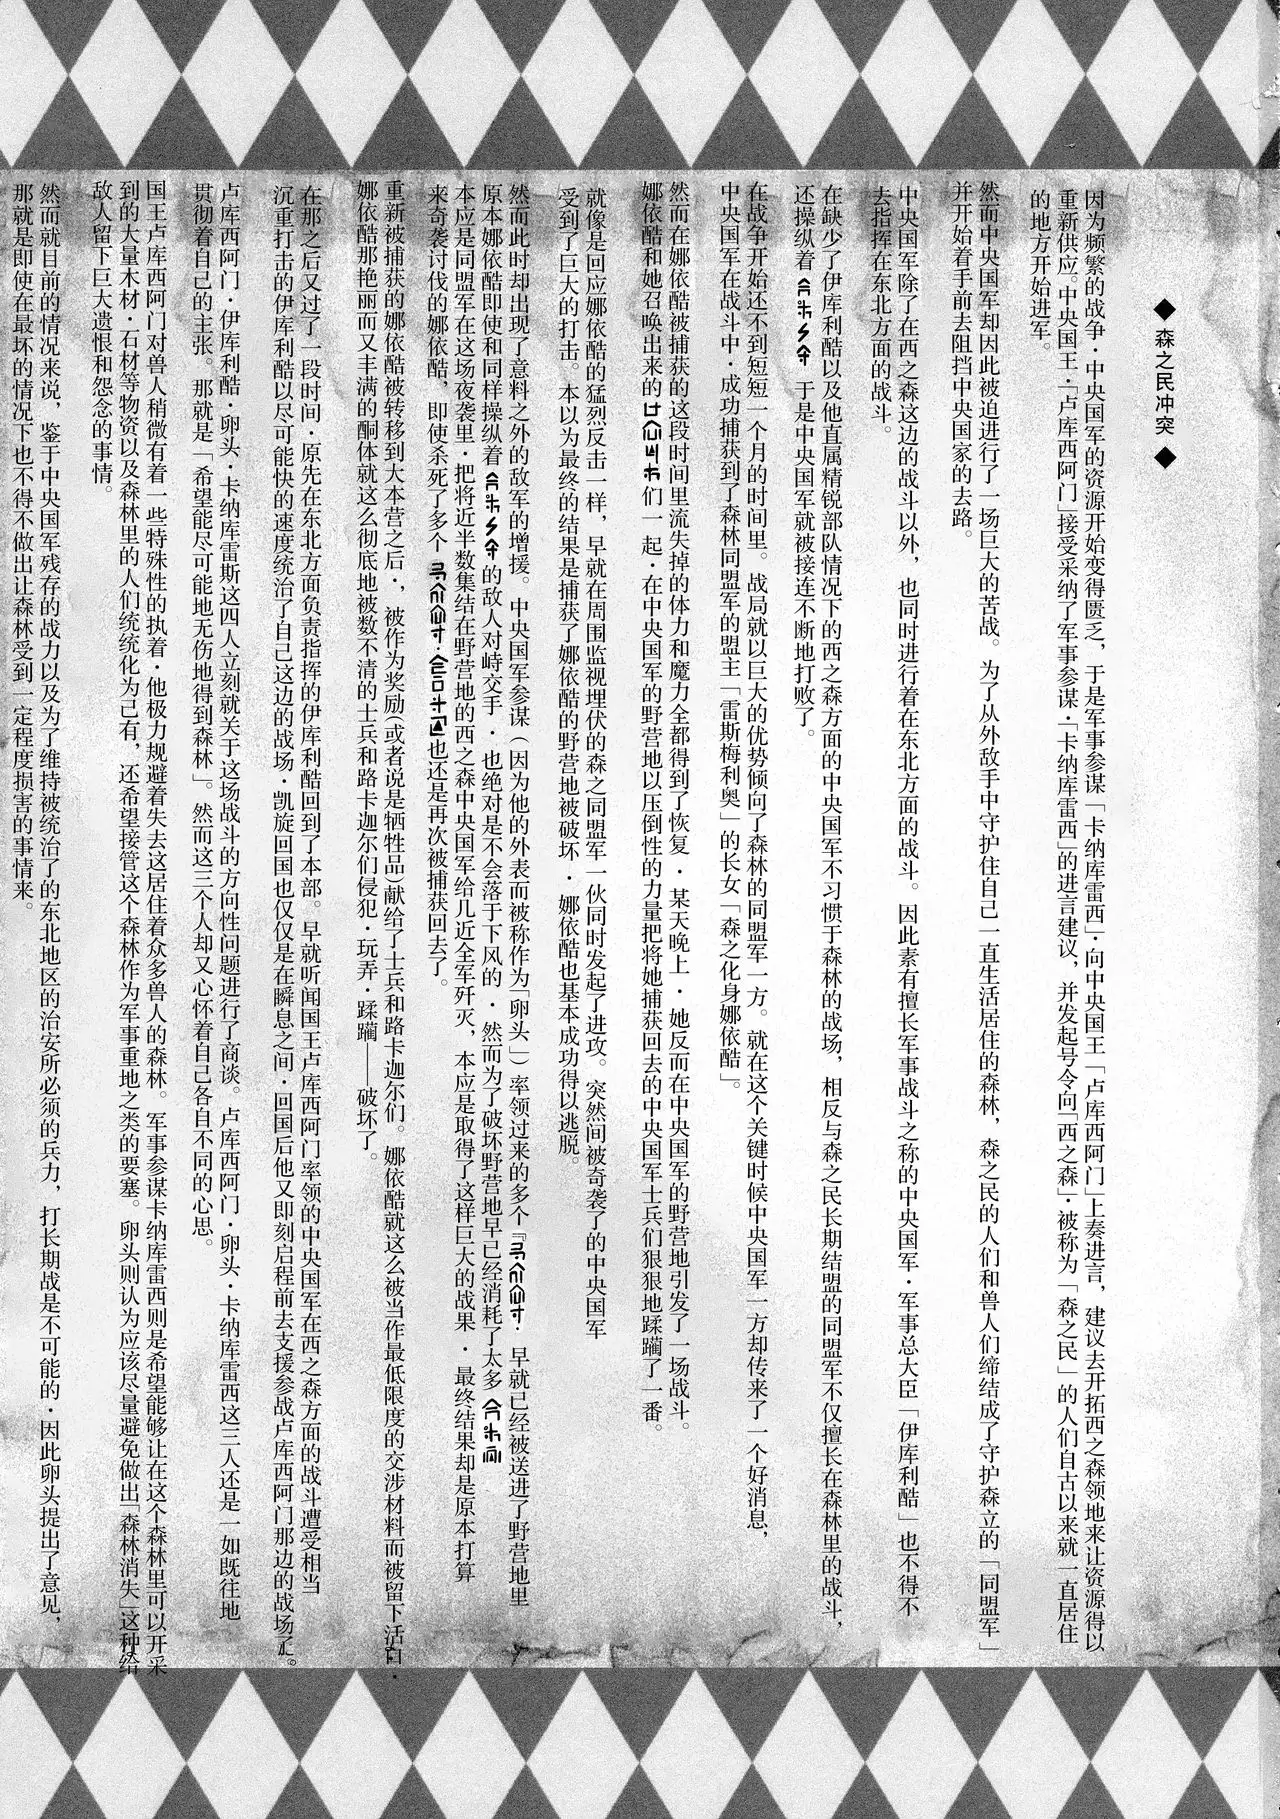 ◆ 森之民冲突 ◆
因为频繁的战争·中央国军的资源开始变得匮乏，于是军事参谋「卡纳库雷西」·向中央国王「卢库西阿门」上奏进言，建议去开拓西之森领地来让资源得以
重新供应。中央国王·「卢库西阿门」接受采纳了军事参谋·「卡纳库雷西」的进言建议，并发起号令向「西之森」·被称为「森之民」的人们自古以来就一直居住
的地方开始进军。
然而中央国军却因此被迫进行了一场巨大的苦战。为了从外敌手中守护住自己一直生活居住的森林，森之民的人们和兽人们缔结成了守护森立的「同盟军」
并开始着手前去阻挡中央国家的去路。
中央国军除了在西之森这边的战斗以外，也同时进行着在东北方面的战斗。因此素有擅长军事战斗之称的中央国军·军事总大臣「伊库利酷」也不得不
去指挥在东北方面的战斗。
在缺少了伊库利酷以及他直属精锐部队情况下的西之森方面的中央国军不习惯于森林的战场，相反与森之民长期结盟的同盟军不仅擅长在森林里的战斗，
还操纵着 于是中央国军就被接连不断地打败了。
在战争开始还不到短短一个月的时间里。战局就以巨大的优势倾向了森林的同盟军一方。就在这个关键时候中央国军一方却传来了一个好消息，
中央国军在战斗中·成功捕获到了森林同盟军的盟主「雷斯梅利奥」的长女「森之化身娜依酷」。
然而在娜依酷被捕获的这段时间里流失掉的体力和魔力全都得到了恢复·某天晚上·她反而在中央国军的野营地引发了一场战斗。
娜依酷和她召唤出来的 们一起·在中央国军的野营地以压倒性的力量把将她捕获回去的中央国军士兵们狠狠地蹂躏了一番。
就像是回应娜依酷的猛烈反击一样，早就在周围监视埋伏的森之同盟军一伙同时发起了进攻。突然间被奇袭了的中央国军
受到了巨大的打击。本以为最终的结果是捕获了娜依酷的野营地被破坏·娜依酷也基本成功得以逃脱。
然而此时却出现了意料之外的敌军的增援。中央国军参谋（因为他的外表而被称作为「卵头」）率领过来的多个『 · 早就已经被送进了野营地里
原本娜依酷即使和同样操纵着 的敌人对峙交手·也绝对是不会落于下风的·然而为了破坏野营地早已经消耗了太多
本应是同盟军在这场夜袭里·把将近半数集结在野营地的西之森中央国军给几近全军歼灭，本应是取得了这样巨大的战果·最终结果却是原本打算
来奇袭讨伐的娜依酷，即使杀死了多个 · 也还是再次被捕获回去了。
重新被捕获的娜依酷被转移到大本营之后·，被作为奖励(或者说是牺牲品)献给了士兵和路卡迦尔们。娜依酷就这么被当作最低限度的交涉材料而被留下活口·
娜依酷那艳丽而又丰满的酮体就这么彻底地被数不清的士兵和路卡迦尔们侵犯·玩弄·蹂躏——破坏了。
在那之后又过了一段时间·原先在东北方面负责指挥的伊库利酷回到了本部。早就听闻国王卢库西阿门率领的中央国军在西之森方面的战斗遭受相当
沉重打击的伊库利酷以尽可能快的速度统治了自己这边的战场·凯旋回国也仅仅是在瞬息之间·回国后他又即刻启程前去支援参战卢库西阿门那边的战场了。
卢库西阿门·伊库利酷·卵头·卡纳库雷斯这四人立刻就关于这场战斗的方向性问题进行了商谈。卢库西阿门·卵头·卡纳库雷西这三人还是一如既往地
贯彻着自己的主张。那就是「希望能尽可能地无伤地得到森林」。然而这三个人却又心怀着自己各自不同的心思。
国王卢库西阿门对兽人稍微有着一些特殊性的执着·他极力规避着失去这居住着众多兽人的森林。军事参谋卡纳库雷西则是希望能够让在这个森林里可以开采
到的大量木材·石材等物资以及森林里的人们统统化为己有，还希望接管这个森林作为军事重地之类的要塞。卵头则认为应该尽量避免做出「森林消失」这种给
敌人留下巨大遗恨和怨念的事情。
然而就目前的情况来说，鉴于中央国军残存的战力以及为了维持被统治了的东北地区的治安所必须的兵力，打长期战是不可能的·因此卵头提出了意见，
那就是即使在最坏的情况下也不得不做出让森林受到一定程度损害的事情来。